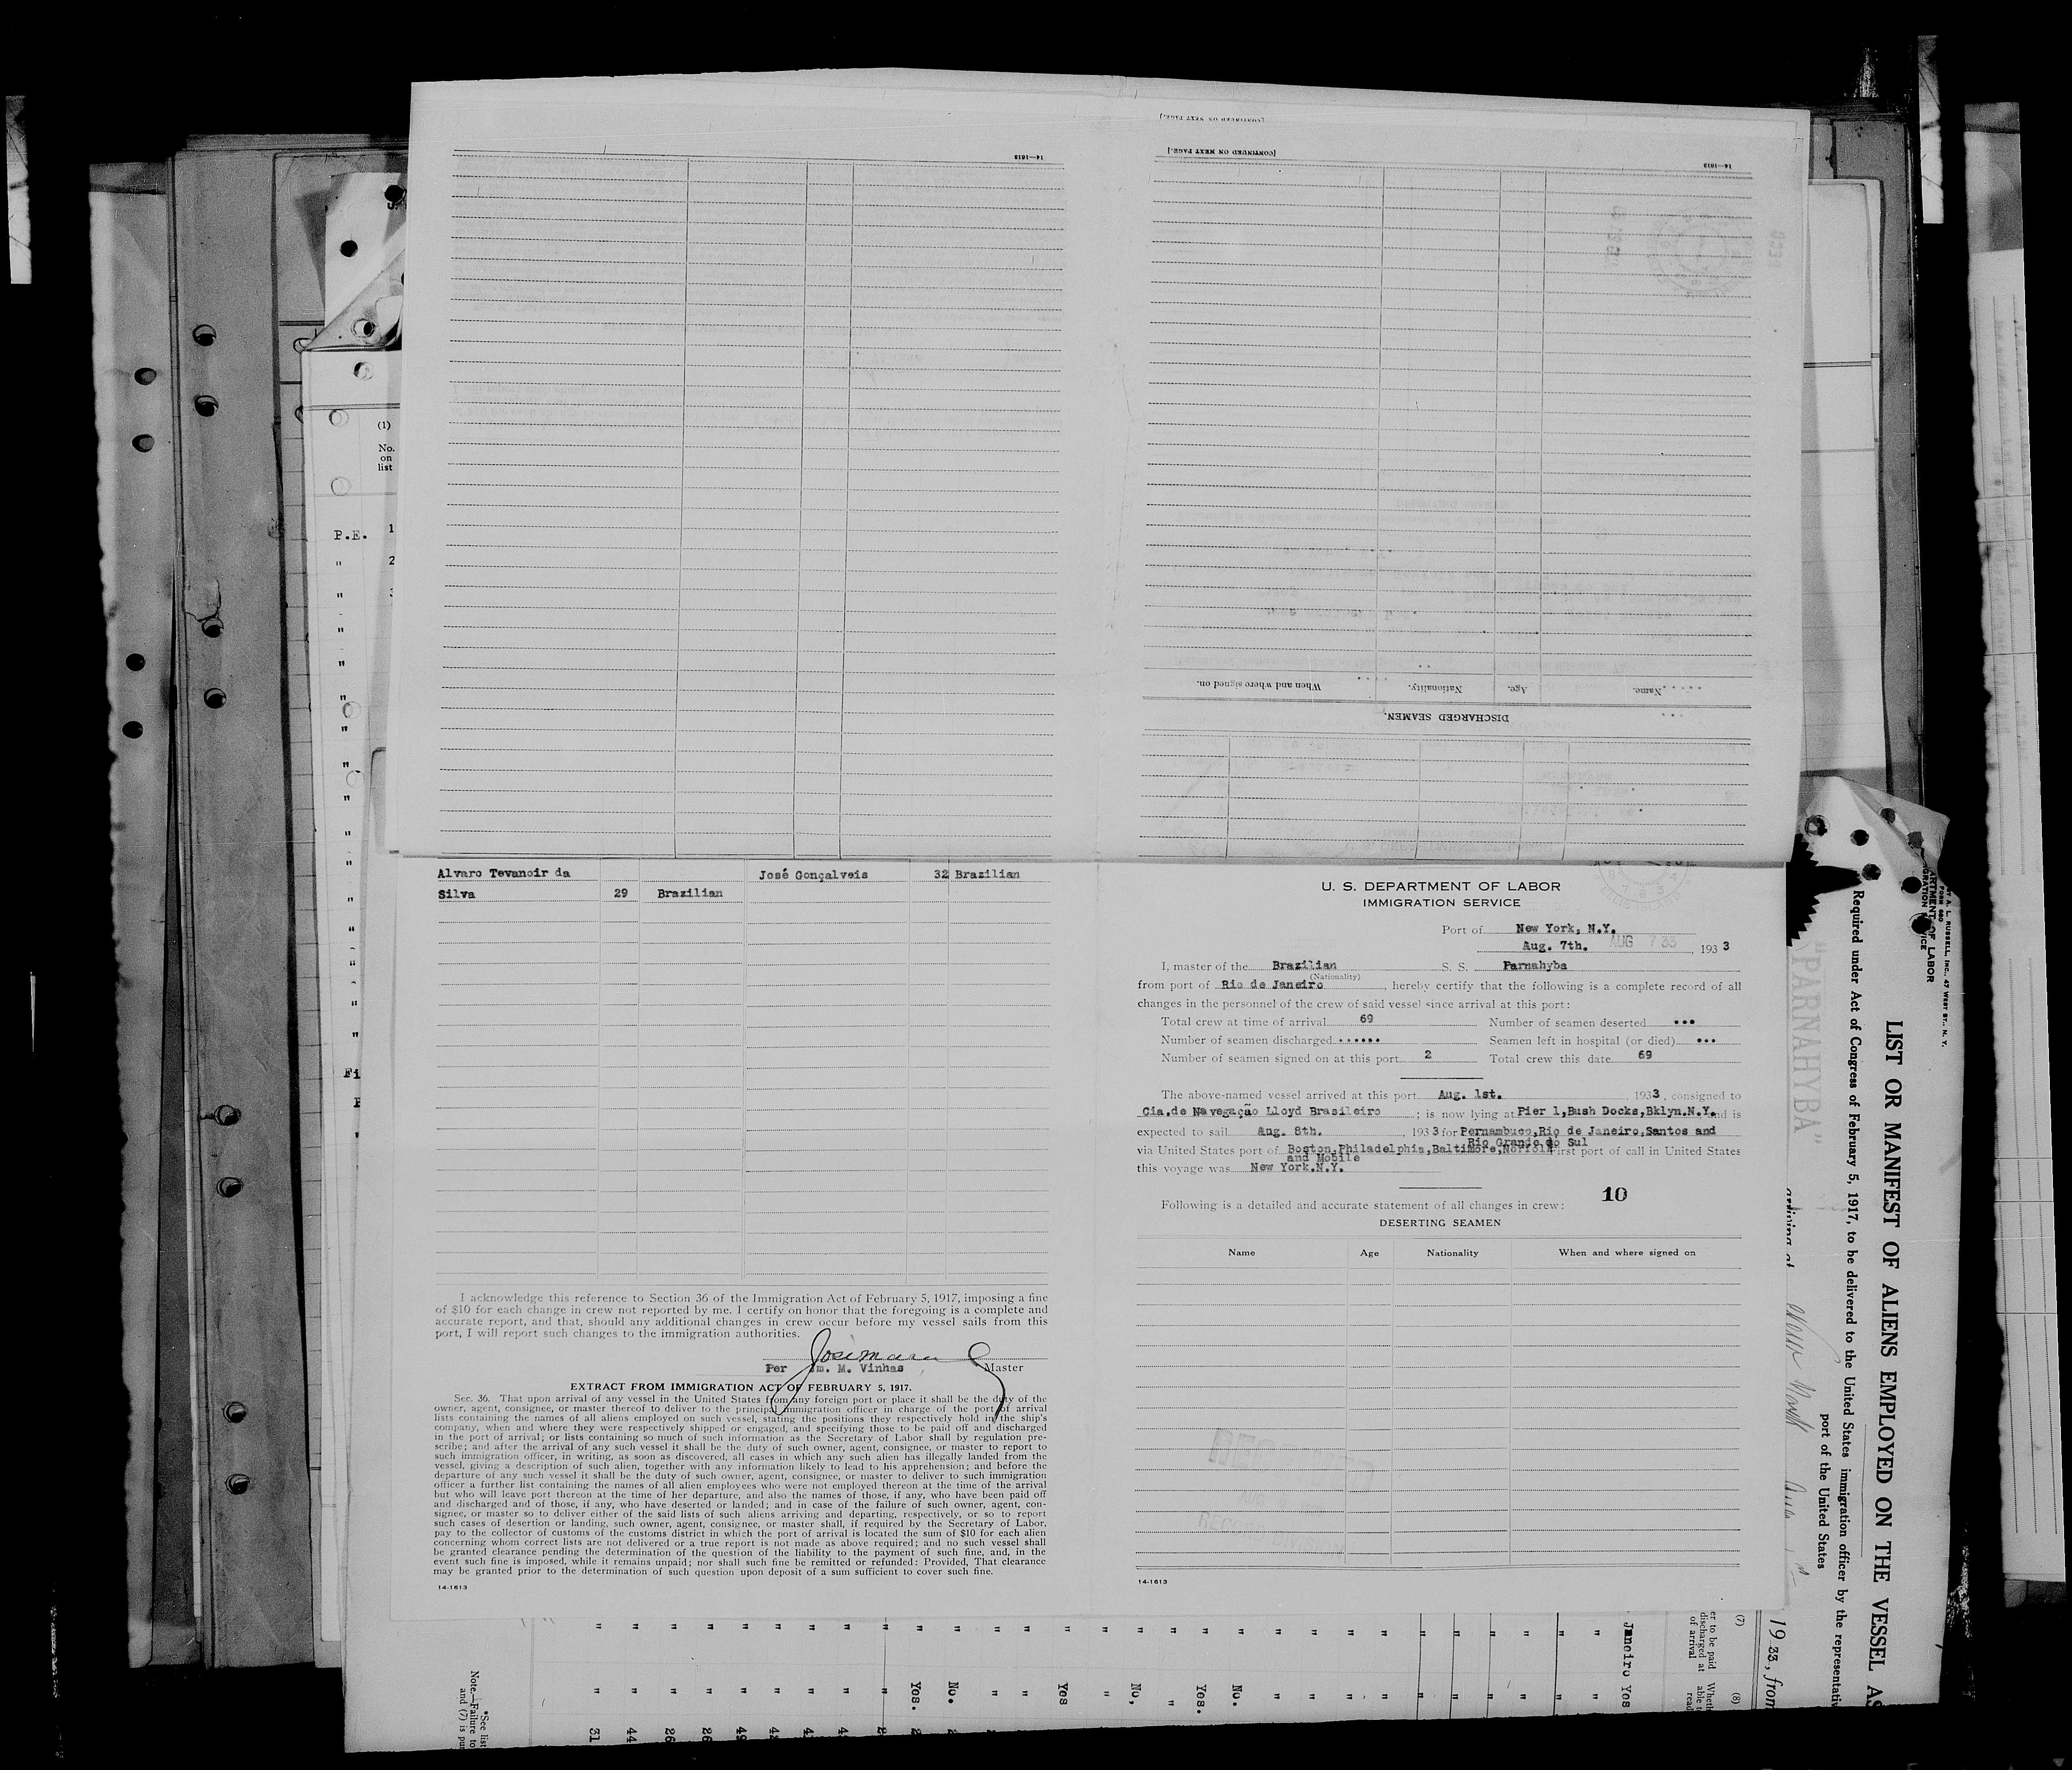 [CONTINUED ON NEXT PAGE.]
[CONTINUED ON NEXT PAGE.]
14—1613
14—1613
When and where signed on.
Nationality.
Age.
Name.
DISCHARGED SEAMEN.
(1)
No.
on
list
P.E. 1
" 2
Alvaro Tevanoir da José Gonçalveis 32 Brazilian
Silva 29 Brazilian
I acknowledge this reference to Section 36 of the Immigration Act of February 5, 1917, imposing a fine
of $10 for each change in crew not reported by me. I certify on honor that the foregoing is a complete and
accurate report, and that, should any additional changes in crew occur before my vessel sails from this
port, I will report such changes to the immigration authorities.
Per m. M. Vinhas Master
EXTRACT FROM IMMIGRATION ACT OF FEBRUARY 5, 1917.
Sec. 36. That upon arrival of any vessel in the United States from any foreign port or place it shall be the duty of the
owner, agent, consignee, or master thereof to deliver to the principal immigration officer in charge of the port of arrival
lists containing the names of all aliens employed on such vessel, stating the positions they respectively hold in the ship's
company, when and where they were respectively shipped or engaged, and specifying those to be paid off and discharged
in the port of arrival; or lists containing so much of such information as the Secretary of Labor shall by regulation pre-
scribe; and after the arrival of any such vessel it shall be the duty of such owner, agent, consignee, or master to report to
such immigration officer, in writing, as soon as discovered, all cases in which any such alien has illegally landed from the
vessel, giving a description of such alien, together with any information likely to lead to his apprehension; and before the
departure of any such vessel it shall be the duty of such owner, agent, consignee, or master to deliver to such immigration
officer a further list containing the names of all alien employees who were not employed thereon at the time of the arrival
but who will leave port thereon at the time of her departure, and also the names of those, if any, who have been paid off
and discharged and of those, if any, who have deserted or landed; and in case of the failure of such owner, agent, con-
signee, or master so to deliver either of the said lists of such aliens arriving and departing, respectively, or so to report
such cases of desertion or landing, such owner, agent, consignee, or master shall, if required by the Secretary of Labor,
pay to the collector of customs of the customs district in which the port of arrival is located the sum of $10 for each alien
concerning whom correct lists are not delivered or a true report is not made as above required; and no such vessel shall
be granted clearance pending the determination of the question of the liability to the payment of such fine, and, in the
event such fine is imposed, while it remains unpaid; nor shall such fine be remitted or refunded: Provided, That clearance
may be granted prior to the determination of such question upon deposit of a sum sufficient to cover such fine.
14-1613
U. S. DEPARTMENT OF LABOR
IMMIGRATION SERVICE
Port of New York, N.Y.
Aug. 7th. AUG 7 33, 1933
I, master of the Brazilian S. S. Parnahyba
(Nationality)
from port of Rio de Janeiro, hereby certify that the following is a complete record of all
changes in the personnel of the crew of said vessel since arrival at this port:
Total crew at time of arrival 69 Number of seamen deserted ...
Number of seamen discharged ...... Seamen left in hospital (or died) ...
Number of seamen signed on at this port 2 Total crew this date 69
The above-named vessel arrived at this port Aug. 1st., 1933, consigned to
Cia.de Navegação Lloyd Brasileiro; is now lying at Pier 1,Bush Docks,Bklyn.N.Y. and is
expected to sail Aug. 8th., 1933 for Pernambuco,Rio de Janeiro,Santos and
Rio Grande do Sul
via United States port of Boston,Philadelphia,Baltimore,Norfolk First port of call in United States
and Mobile
this voyage was New York.N.Y.
10
Following is a detailed and accurate statement of all changes in crew:
DESERTING SEAMEN
Name Age Nationality When and where signed on
RECEIVED
RECORD DIVISION
14-1613
LIST OR MANIFEST OF ALIENS EMPLOYED ON THE VESSEL AS
Required under Act of Congress of February 5, 1917, to be delivered to the United States immigration officer by the representativ
port of the United States
"PARNAHYBA"
arriving at New York Aug 1st
1933, from
A. L. RUSSELL, INC., 47 WEST ST., N. Y.
FORM 680
OF LABOR
(7)
er to be paid
discharged at
of arrival
(8)
Wheth
able t
read
Janeiro Yes
No.
Yes.
No,
Yes
No.
Yes.
31 44 26 26 49
*See list
Note.—Failure to
and (7) is pun